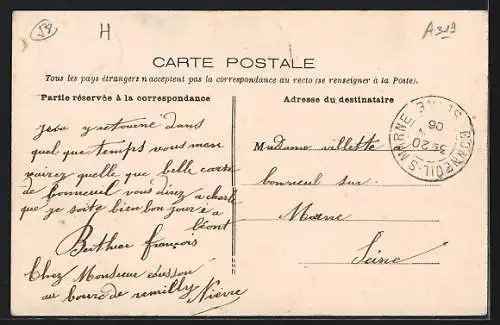 58
H
A319
CARTE POSTALE
Tous les pays étrangers n'acceptent pas la correspondance au recto (se renseigner à la Poste).
Partie réservée à la correspondance
Adresse du destinataire
jesu y retourné dans
quel que temps vous men
vairez quelle que belle carte
de bonneuil vous direz a charle
que je soite bien bon jour é a
léont
Berthier françois
Chez Monsieur
au bourc de remilly Nièvre
Madame villette
bonneuil sur
Marne
Seine
3E 20
06
S-MARNE